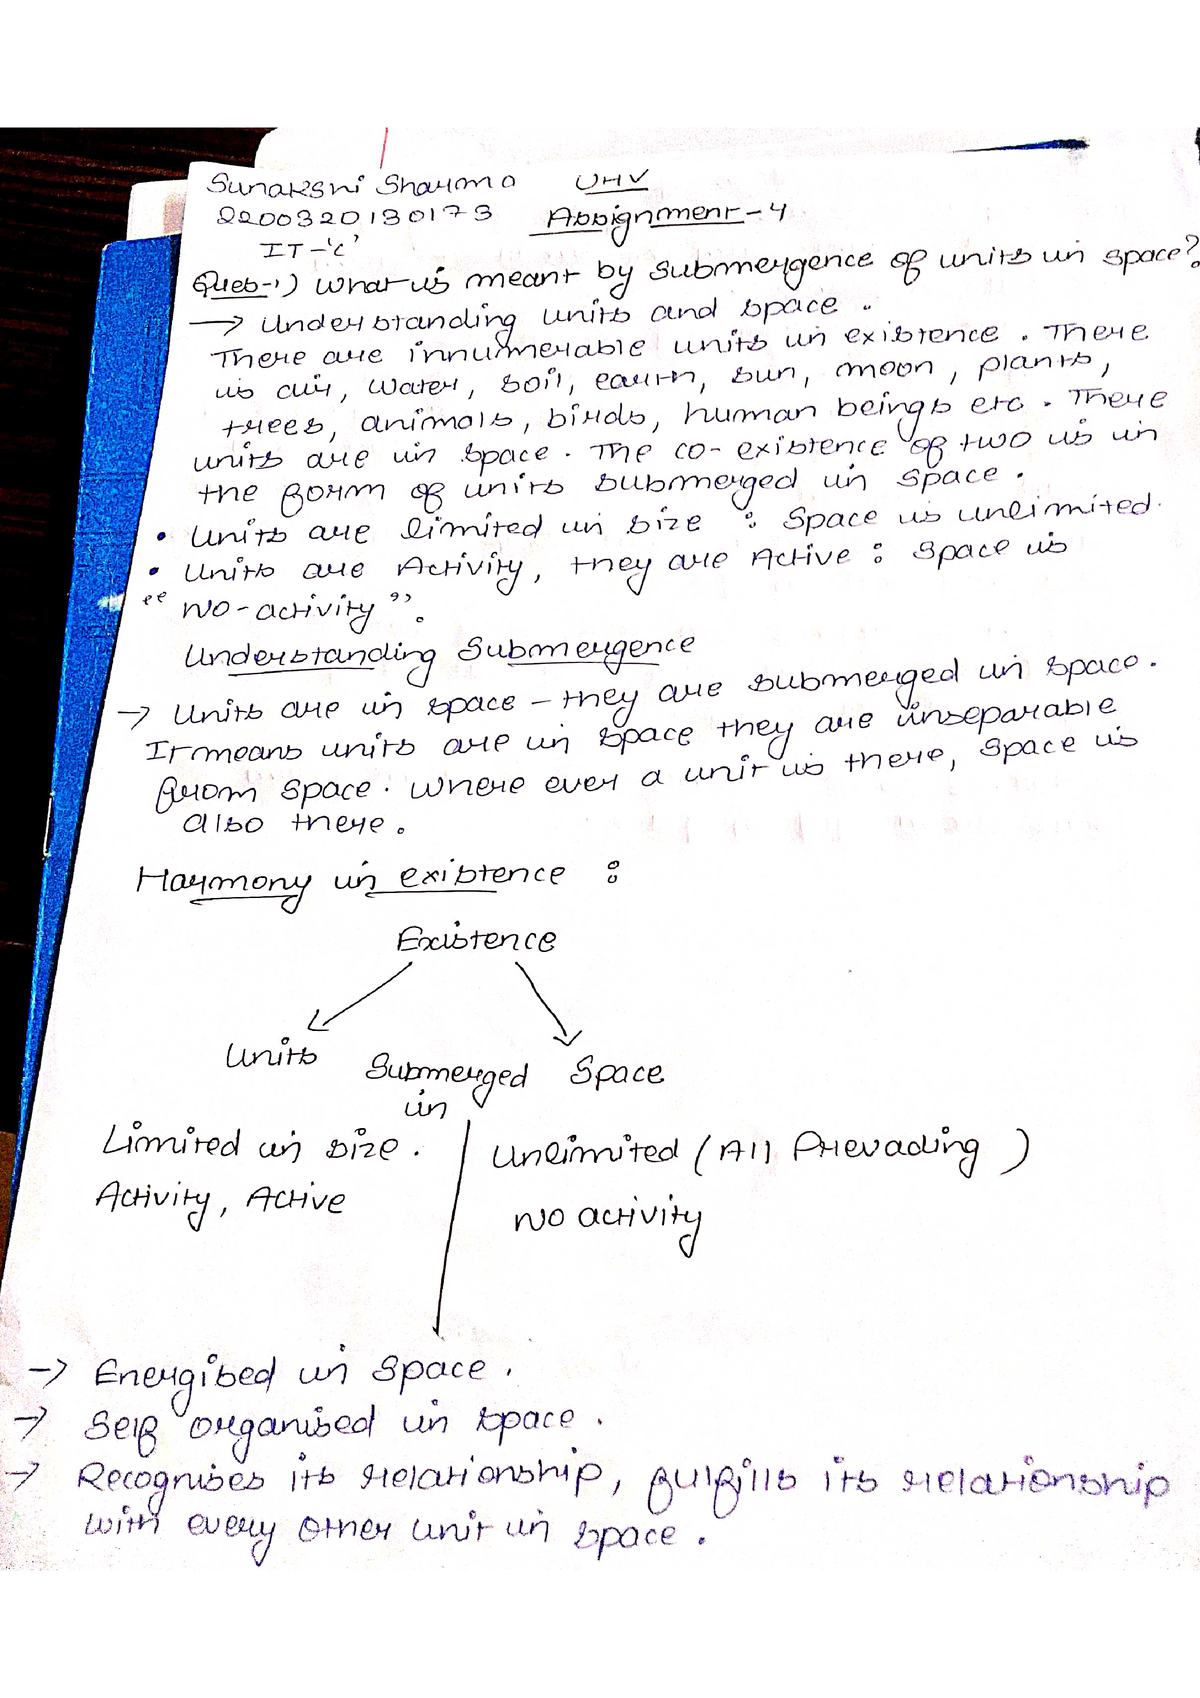 Sunakshi Sharma UHV
2200320130173 Assignment-4
IT-'C'
Ques-1) What is meant by submergence of units in space?
→ Understanding units and space.
There are innumerable units in existence. There
is air, water, soil, earth, sun, moon, plants,
trees, animals, birds, human beings etc. There
units are in space. The co-existence of two is in
the form of units submerged in space.
• Units are limited in size : Space is unlimited.
• Units are Activity, they are Active : Space is
"No-activity".
Understanding Submergence
→ Units are in space - they are submerged in space.
It means units are in space they are inseparable
from space. Where ever a unit is there, space is
also there.
Harmony in existence :
Existence
Units Submerged in Space
Limited in size. Unlimited (All Prevading)
Activity, Active No activity
→ Energised in space.
→ Self organised in space.
→ Recognises its relationship, fulfills its relationship
with every other unit in space.